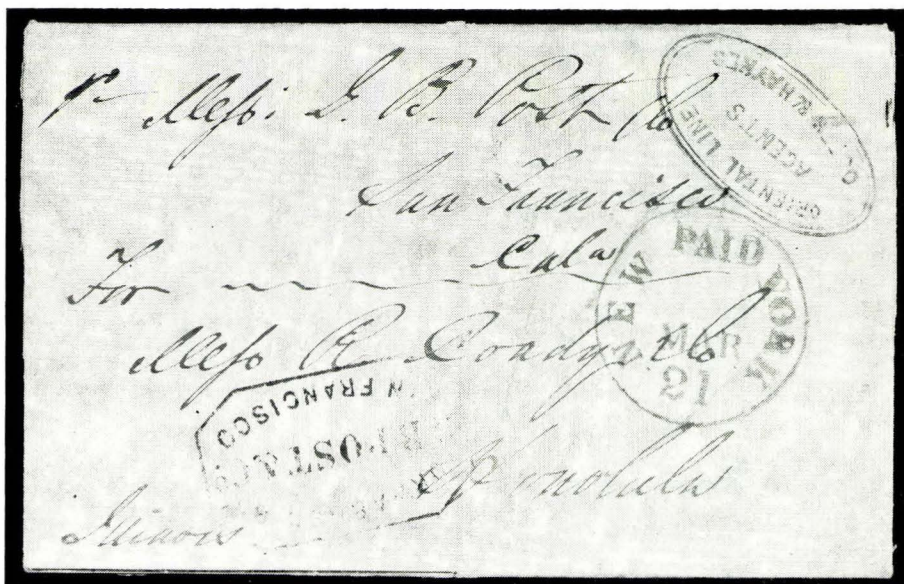 pr Messr. G. B. Post & Co
San Francisco
Cala
For
Mess R. Coady & Co
Honolulu
Illinois
ORIENTAL LINE
AGENTS
& HAYKES
NEW YORK
PAID
MAR
21
N FRANCISCO
POSTAGE